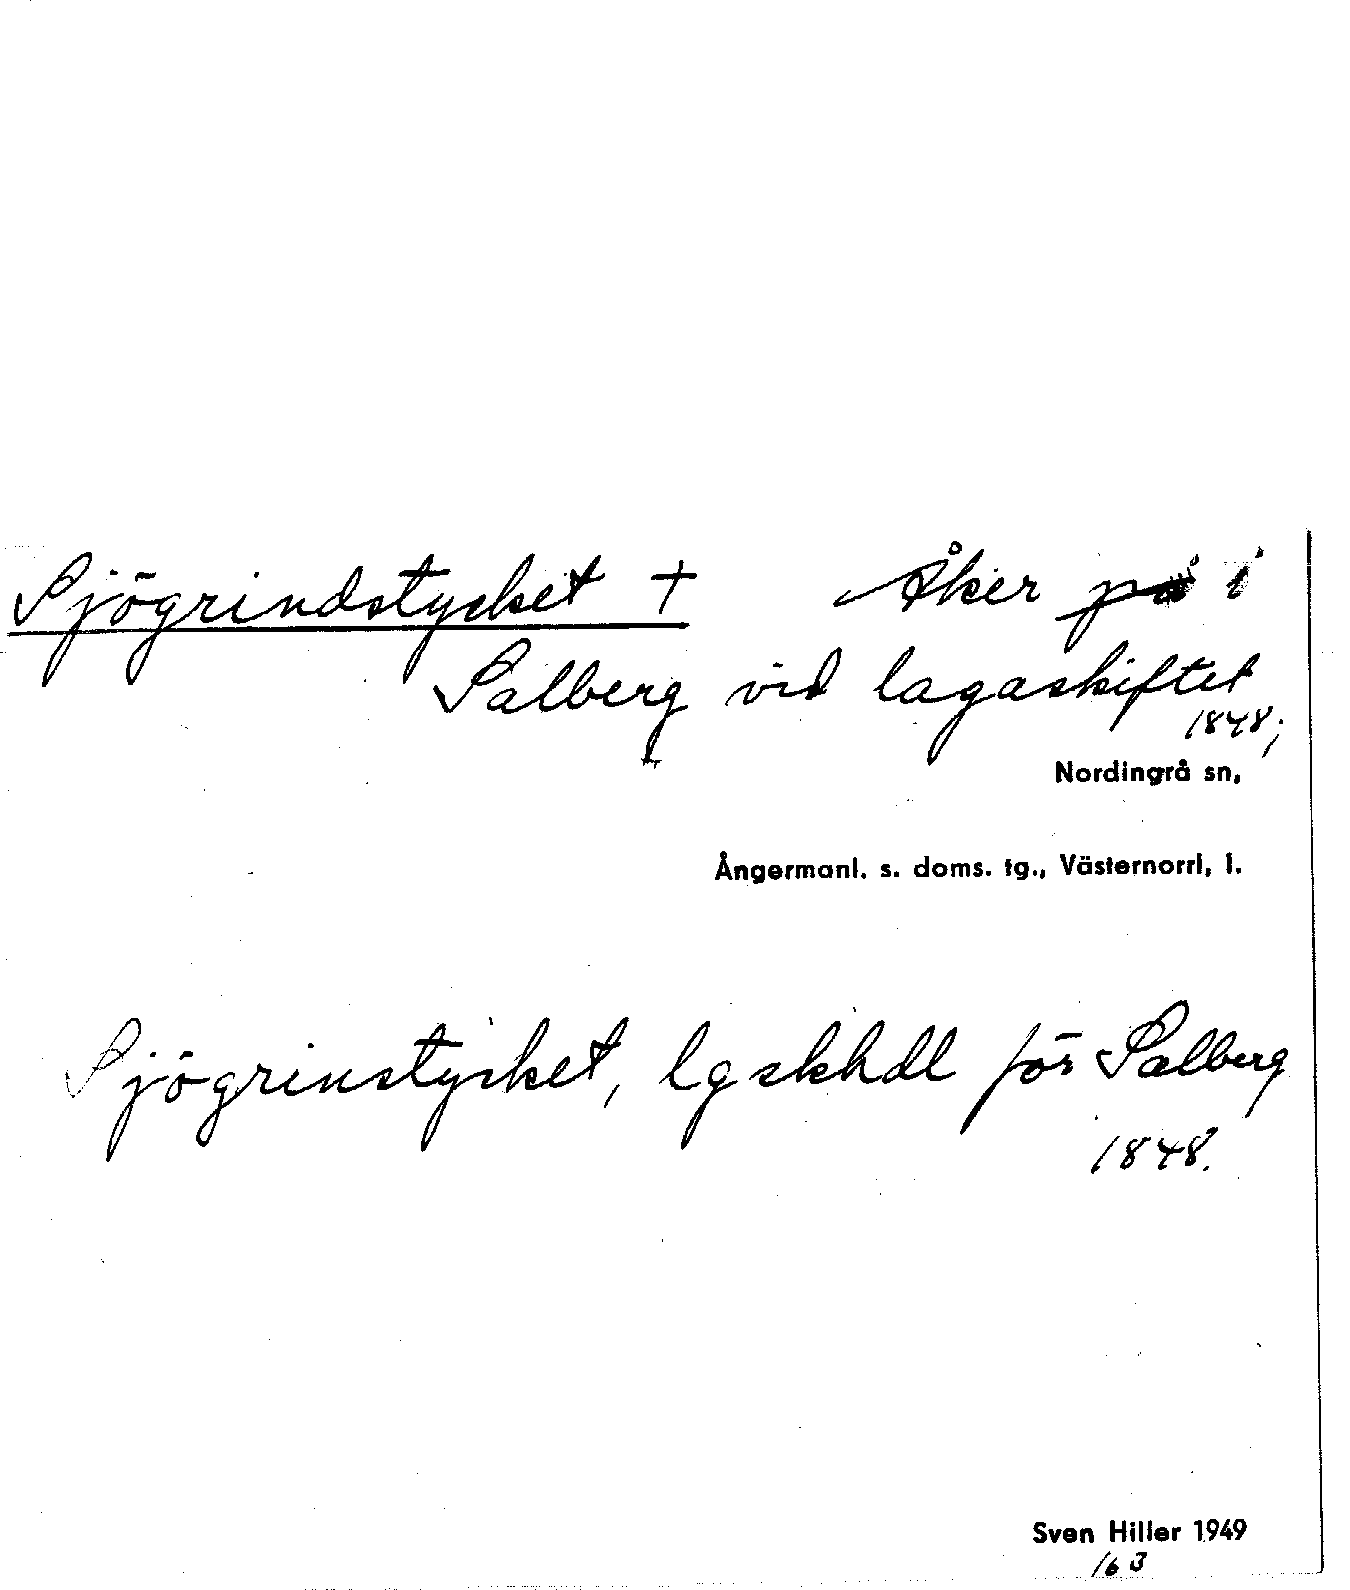 Sjögrindstycket + Åker på i
Salberg vid lagaskiftet
1848;
Nordingrå sn,
Ångermanl. s. doms. tg., Västernorrl, l.
Sjögrinstycket, lgskhdl för Salberg
1848.
Sven Hiller 1949
163